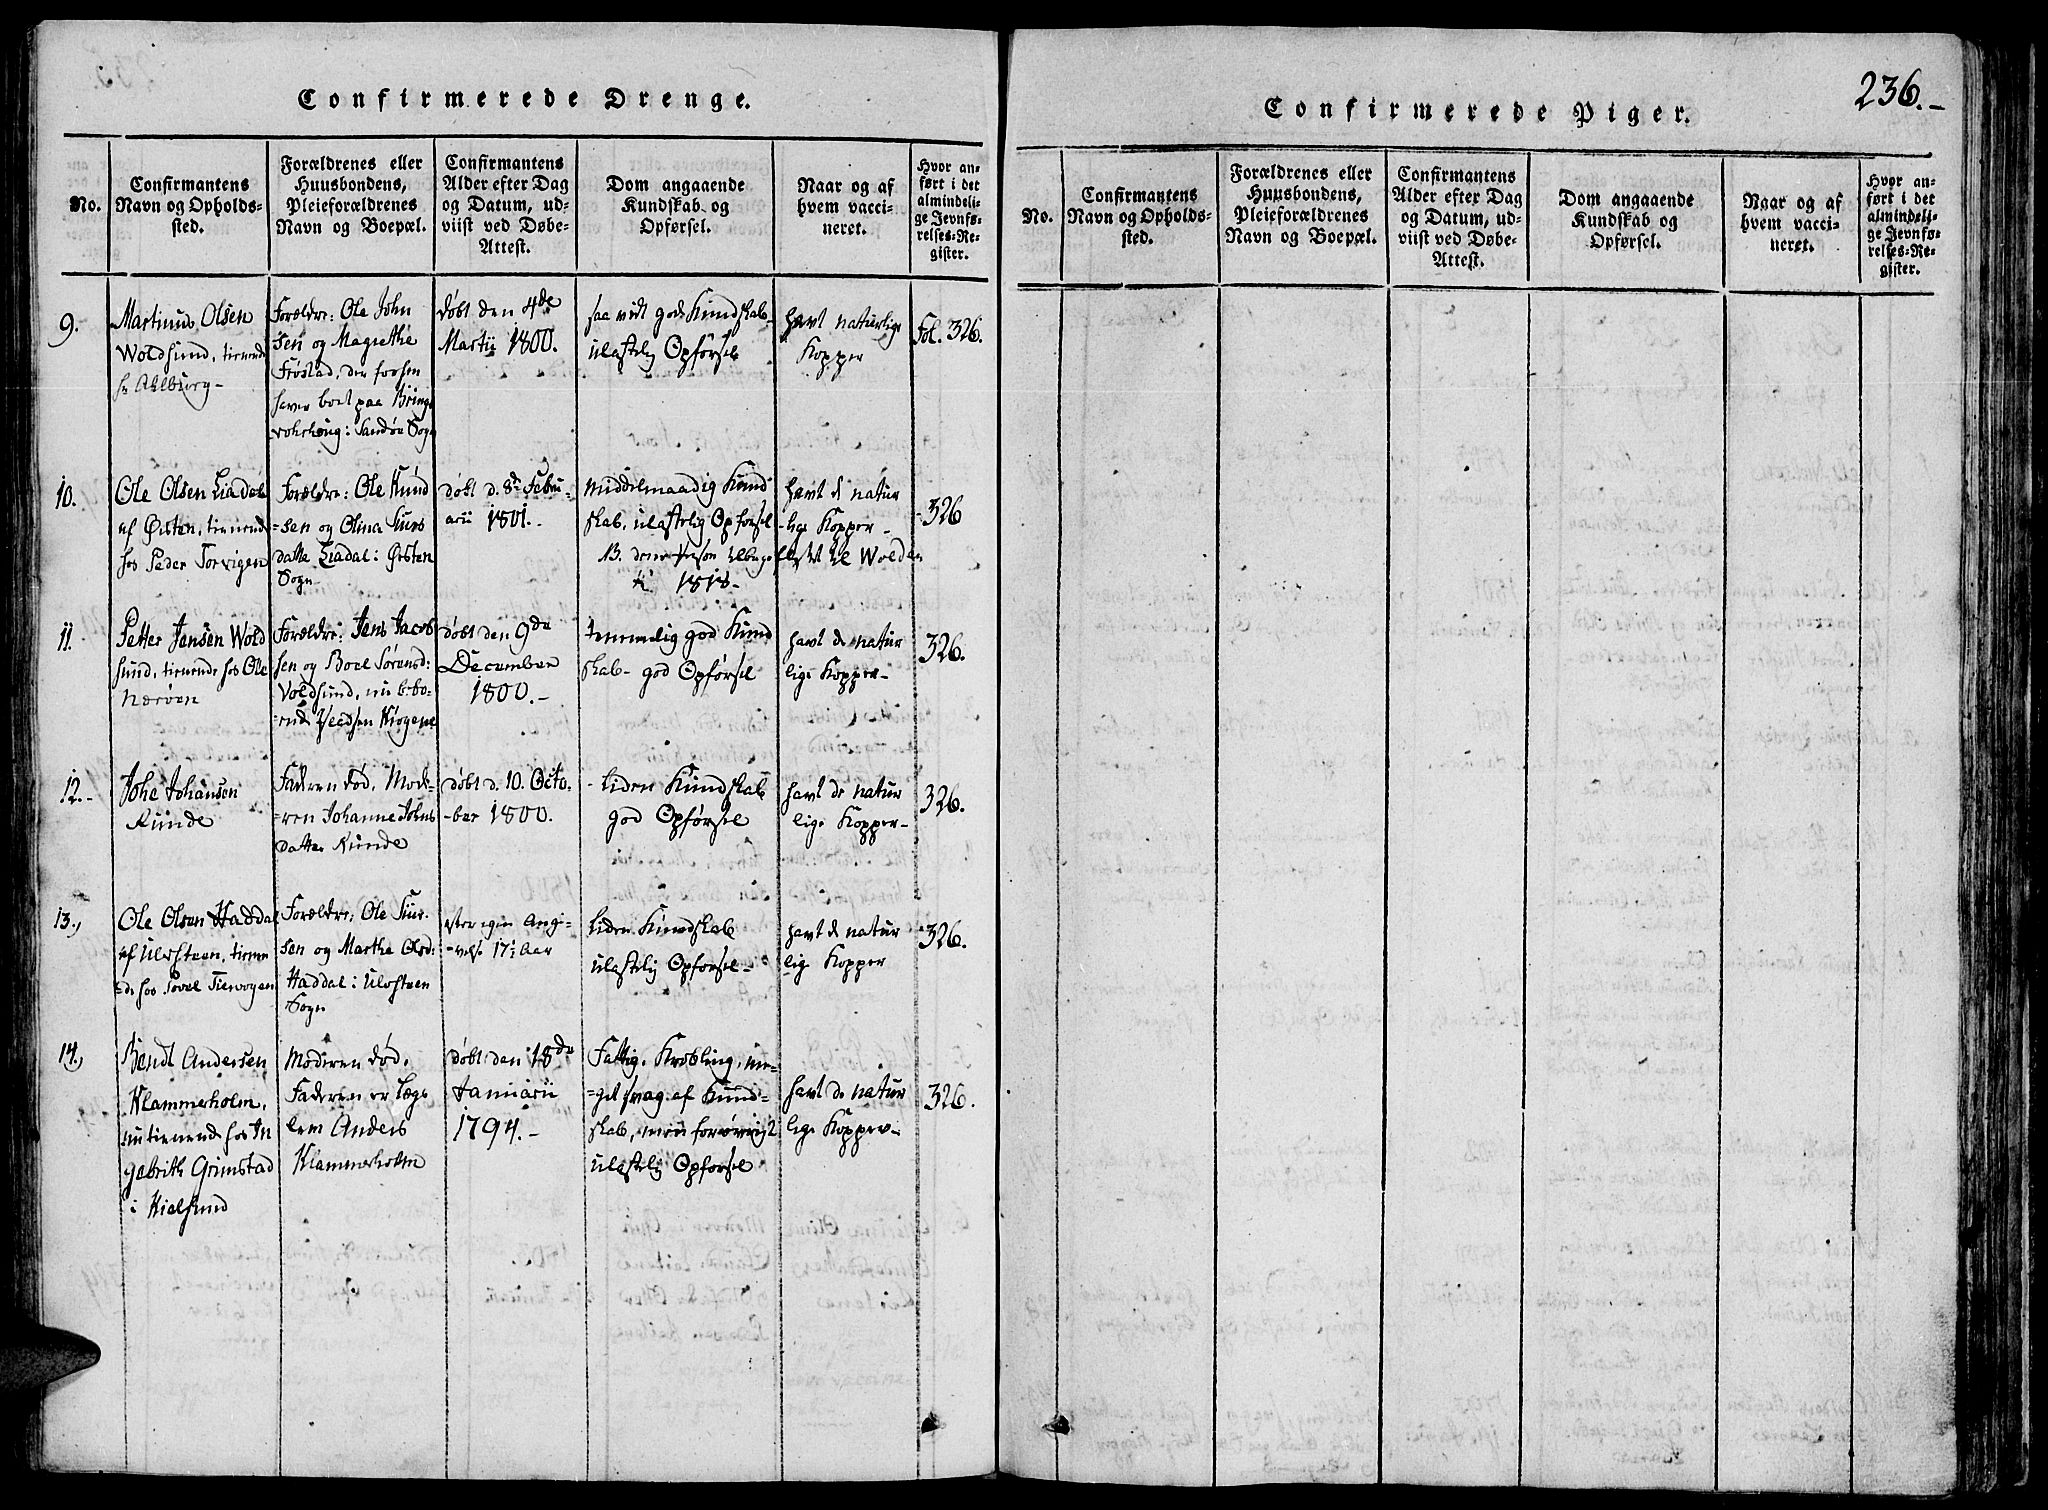 Confirmerede Drenge.
No.
Confirmantens
Navn og Opholds-
sted.
Forældrenes eller
Huusbondens,
Pleieforældrenes
Navn og Boepæl.
Confirmantens
Alder efter Dag
og Datum, ud-
viist ved Døbe-
Attest.
Dom angaaende
Kundskab og
Opførsel.
Naar og af
hvem vacci-
neret.
Hvor an-
ført i det
almindeli-
ge Jevnfø-
relses-Re-
gister.
9.
Martinus Olsen
Woldsund, tienende
hs Ahlburg-
Forældre: Ole John
sen og Magrethe
Frøstad, der forhen
haver boet paa
Sandøe Sogn
døbt den 4de
Martii 1800.
saa vidt god Kundskab
ulastelig Opførsel
havt naturlige
Kopper
Fol. 326.
10.
Ole Olsen Liadal
af Ørsten, tienende
hos Peder Torvigen
Forældre: Ole Knud
=sen og Olina Siurs
datter Liadal i Ørsten
Sogn
døbt d. 8de Febru-
arii 1801.-
Middelmaadig Kund
skab, ulastelig Opførsel
NB. denne Person
1818-
havt de natur
-lige Kopper-
326
11.
Petter Jensen Wold
sund, tienende hos Ole
Nærøen
Forældre: Jens Jacob
sen og Boel Sørensd:
Voldsund, nu bebo-
=ende
døbt den 9de
December
1800.-
temmelig god Kund
skab- god Opførsel
havt de natur
lige Kopper-
326.
12.-
Johe Johansen
Runde
Faderen død, Mode-
=ren Johanne Johns
datter Runde
døbt d. 10. Octo-
-ber 1800.
liden Kundskab
god Opførsel
havt de natur
lige Kopper-
326.
13.,
Ole Olsen Haddal
af Ulvsteen, tienen
de hos
Forældre: Ole Siur-
sen og Marthe Olsd:
Haddal i Ulvsteen
Sogn
efter egen Angi-
-velse 17½ Aar
liden Kundskab
ulastelig Opførsel-
havt de natur
lige Kopper
326.
14.,
Bendt Andersen
Klammerholm,
nu tienende hos In
gebrith Grimstad
i Hielsund
Moderen død.
Faderen er Læg-
lem Anders
Klammerholm
døbt den 18de
Januarii
1794.-
Fattig, Krøbling, me-
=get svag af Kund-
skab, men forøvrigt
ulastelig Opførsel
havt de natur
lige Kopper-
326.
236.-
Confirmerede Piger.
No.
Confirmantens
Navn og Opholds-
sted.
Forældrenes eller
Huusbondens,
Pleieforældrenes
Navn og Boepæl.
Confirmantens
Alder efter Dag
og Datum, ud-
viist ved Døbe-
Attest.
Dom angaaende
Kundskab og
Opførsel.
Naar og af
hvem vacci-
neret.
Hvor an-
ført i det
almindeli-
ge Jevnfø-
relses-Re-
gister.